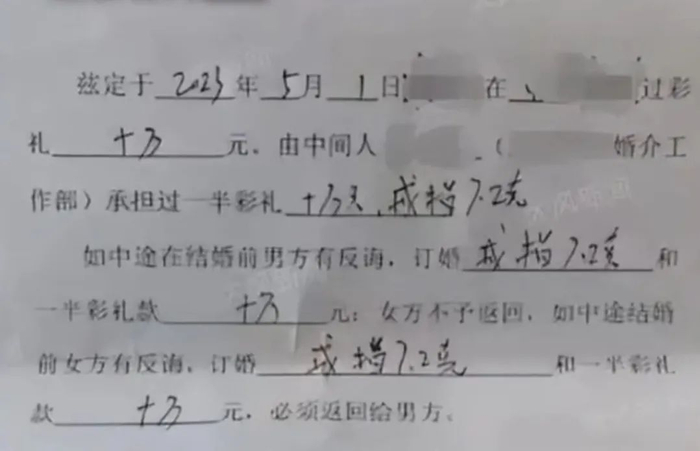 兹定于 2023 年 5 月 1 日 在 过彩
礼 十万 元、由中间人 （ 婚介工
作部）承担过一半彩礼 十万元，戒指7.2克
如中途在结婚前男方有反诲、订婚 戒指7.2克 和
一半彩礼款 十万 元；女方不予返回、如中途结婚
前女方有反诲、订婚 戒指7.2克 和一半彩礼
款 十万 元，必须返回给男方。